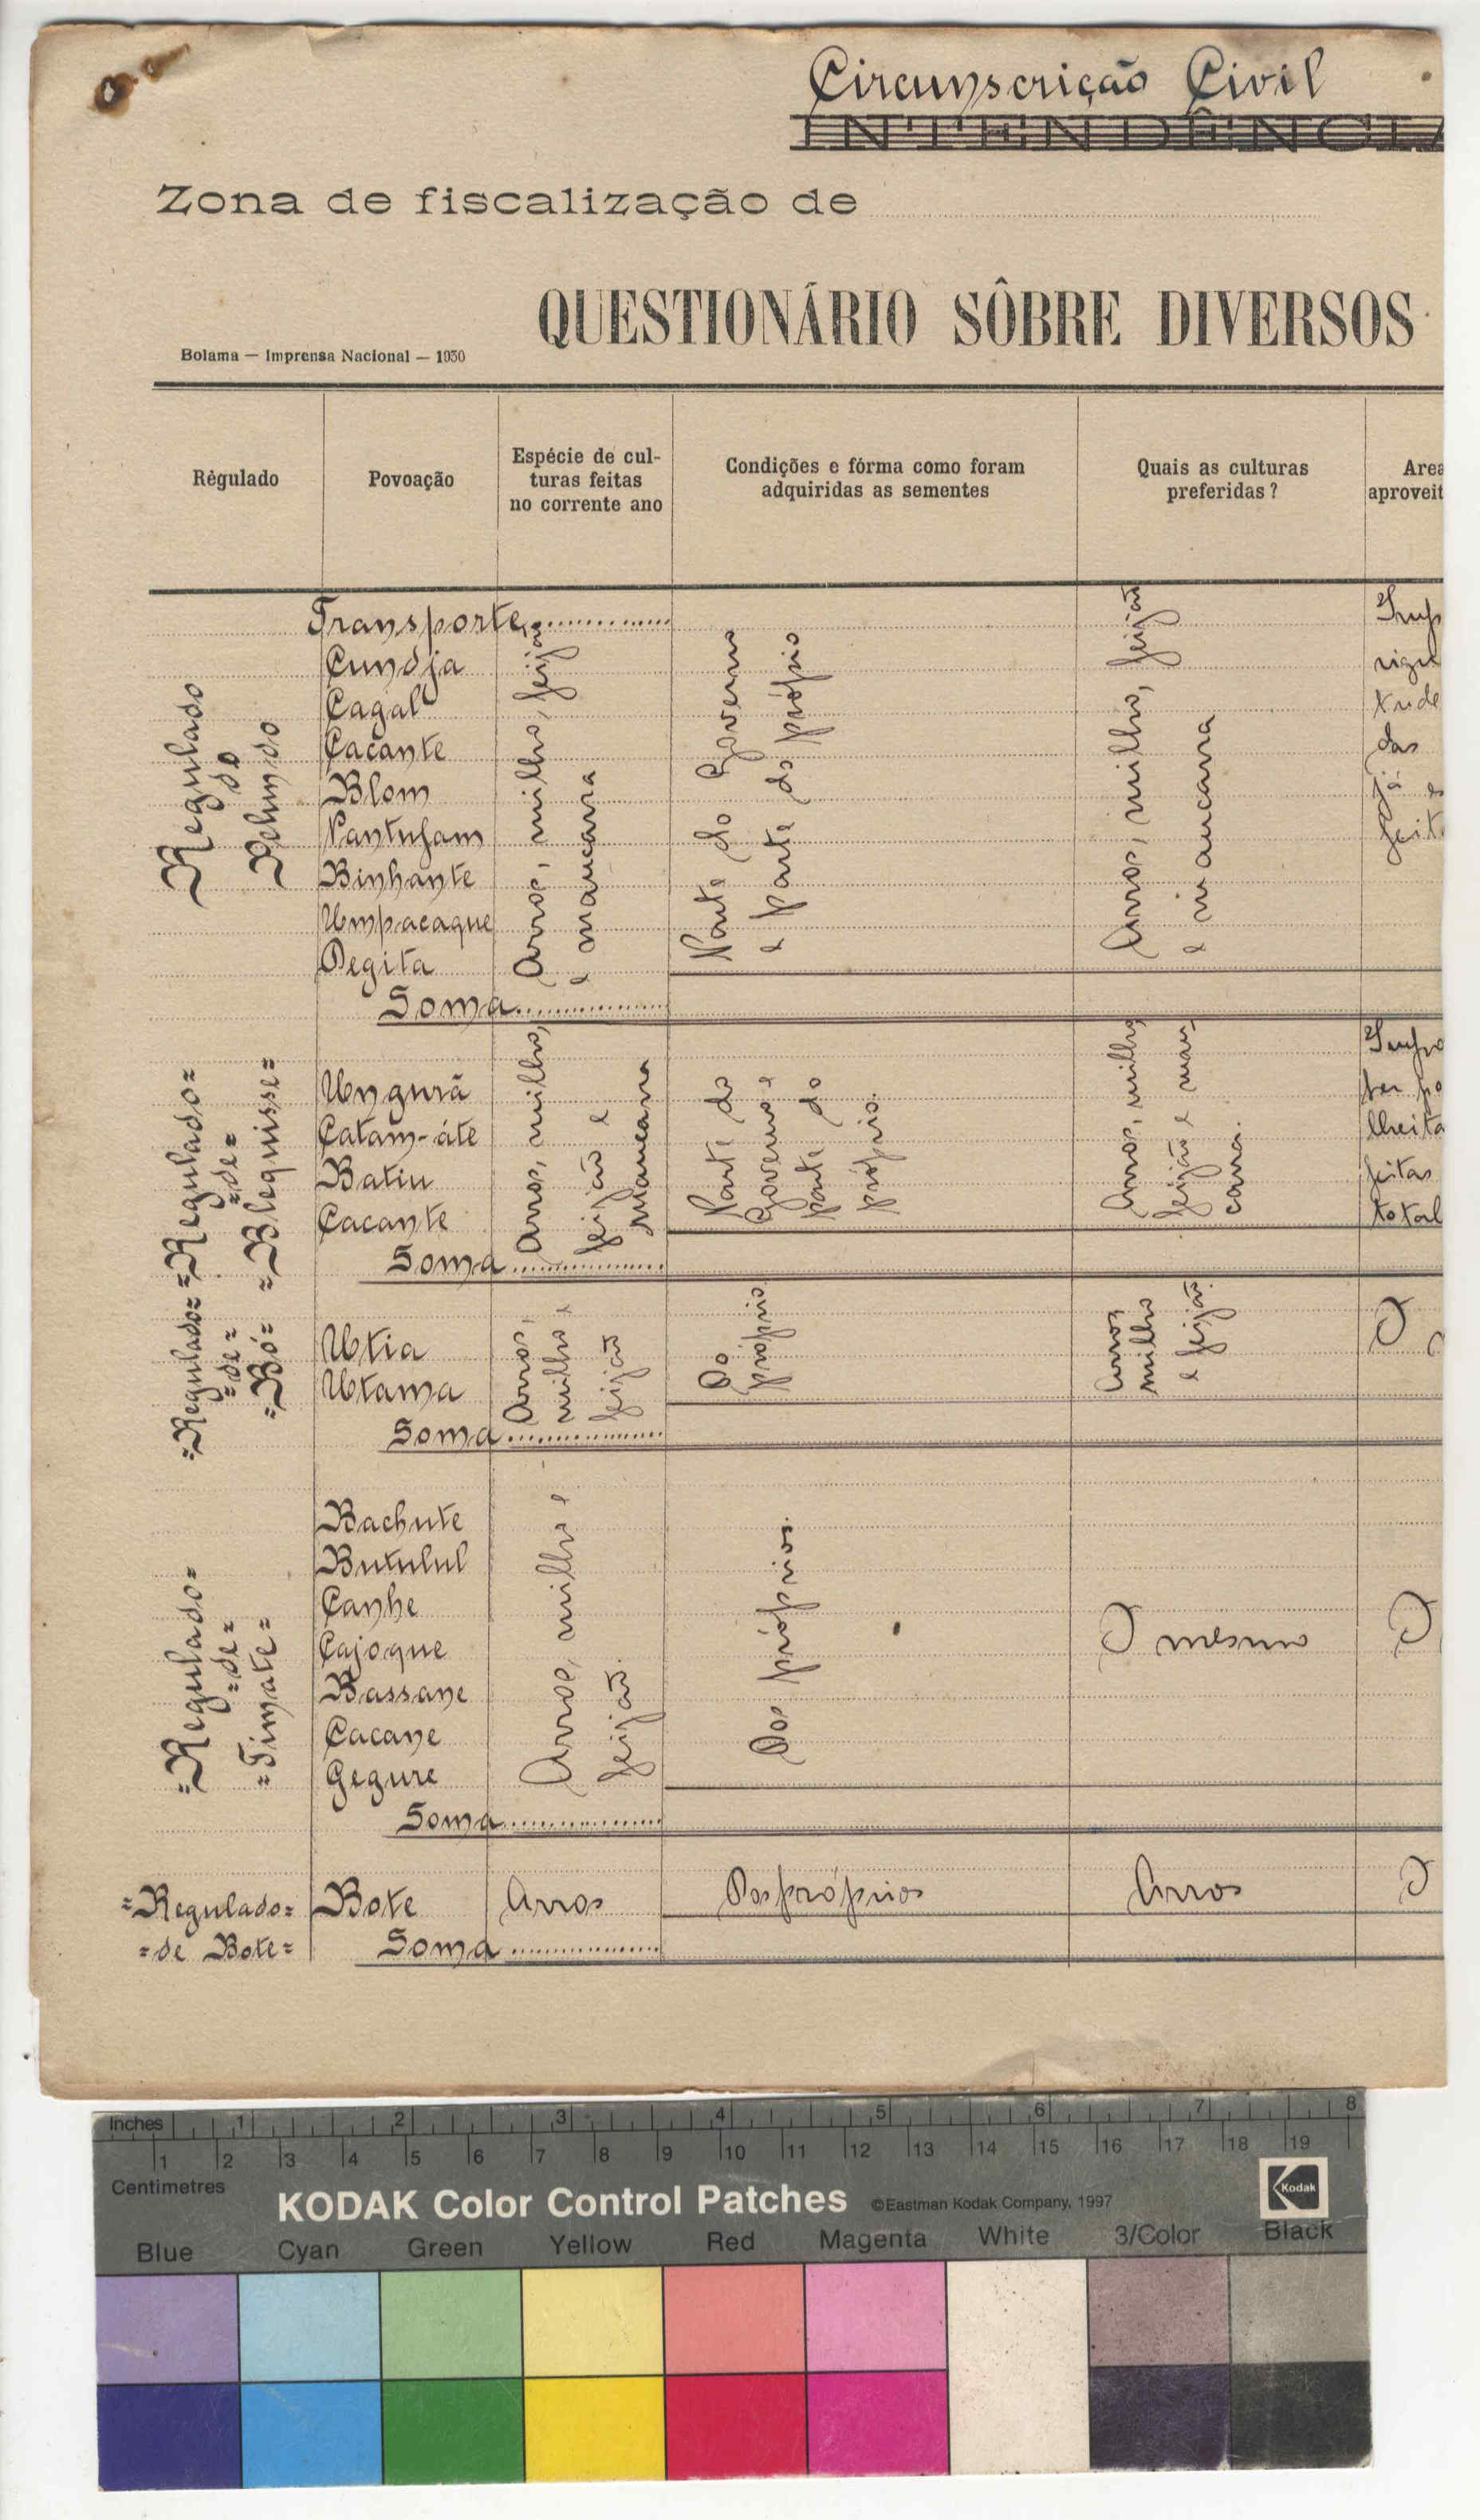 Circunscrição Civil
INTENDÊNCIA
Zona de fiscalização de
QUESTIONÁRIO SÔBRE DIVERSOS
Bolama — Imprensa Nacional — 1930
Régulado
Povoação
Espécie de cul-
turas feitas
no corrente ano
Condições e fórma como foram
adquiridas as sementes
Quais as culturas
preferidas?
Area
aproveit
Regulado
do
Pelundo
Transporte
Cundja
Cagal
Cacante
Blom
Pantufam
Binhante
Umpacaque
Pegita
Soma
Arros, milho, feijão
e mancarra
Parte do Governo
e parte do próprio
Arros, milho, feijão
e mancarra
das
já
feit
=Regulado=
=de=
=Blequisse=
Ungurã
Catam-áte
Batiu
Cacante
Soma
Arros, milho,
feijão e
mancarra
Parte do
Governo e
parte do
próprio.
Arros, milho
feijão e man
carra.
Impo
ser po
lheita
feitas
total
=Regulado=
=de=
=Bó=
Utia
Utama
Soma
Arros,
milho e
feijão
Do
próprio.
Arros
milho
e feijão.
O
=Regulado=
=de=
=Timate=
Bachute
Butulul
Canhe
Cajoque
Bassane
Cacane
Gegure
Soma
Arros, milho e
feijão.
Dos próprios.
O mesmo
O
=Regulado=
=de Bote=
Bote
Arros
Dos próprios
Arros
O
Soma
Inches 1 2 3 4 5 6 7 8
1 2 3 4 5 6 7 8 9 10 11 12 13 14 15 16 17 18 19
Centimetres
KODAK Color Control Patches ©Eastman Kodak Company, 1997 Kodak
Blue Cyan Green Yellow Red Magenta White 3/Color Black